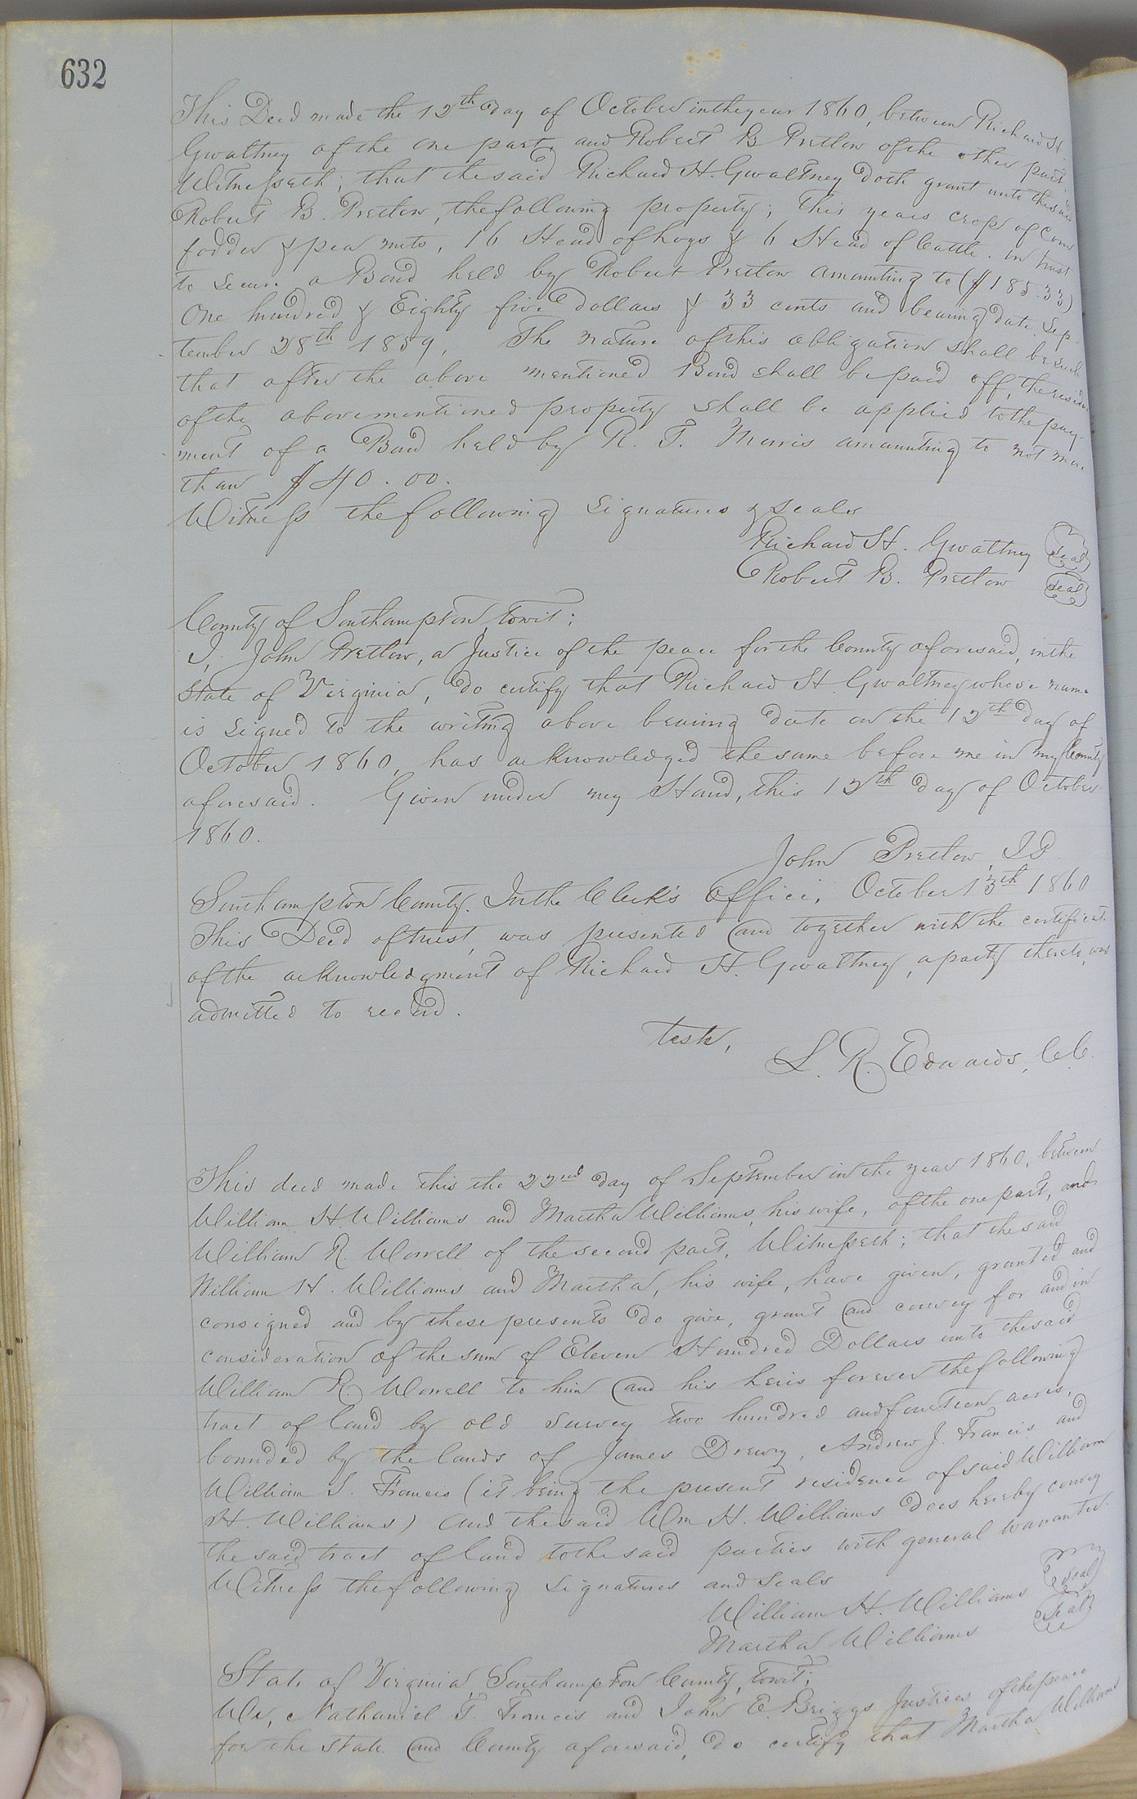 632
This Deed made the 12th day of October in the year 1860, between Richard H.
Gwaltney of the one part and Robert B Pretlow of the other part
Witnesseth; that the said Richard H. Gwaltney doth grant unto the said
Robert B. Pretlow, the following property; this years crop of Corn
fodder & pea nuts, 16 Head of hogs & 6 Head of Cattle. In trust
to secure a Bond held by Robert Pretlow amounting to ($185.33)
One hundred & Eighty five Dollars & 33 cents and bearing date Sep-
tember 28th 1859, The nature of this obligation shall be such
that after the above mentioned Bond shall be paid off, the residue
of the abovementioned property shall be applied to the pay-
ment of a Bond held by R. T. Morris amounting to not more
than $40.00.
Witness the following signatures & seals
Richard H. Gwaltney Seal
Robert B. Pretlow Seal
County of Southampton towit;
I, John Pretlow, a Justice of the peace for the County aforesaid, in the
State of Virginia, do certify that Richard H Gwaltney whose name
is signed to the writing above bearing date on the 12th day of
October 1860, has acknowledged the same before me in my County
aforesaid. Given under my Hand, this 12th day of October
1860.
John Pretlow, J.P
Southampton County. In the Clerk's Office, October 13th 1860
This Deed of trust, was presented and together with the certificate
of the acknowledgment of Richard H. Gwaltney, a party thereto, was
admitted to record.
Teste,
L. R. Edwards, C.C.
This deed made this the 22nd day of September in the year 1860, between
William H Williams and Martha Williams, his wife, of the one part, and
William R. Worrell of the second part, Witnesseth; that the said
William H. Williams and Martha, his wife, have given, granted and
consigned and by these presents do give, grant and convey for and in
consideration of the sum of Eleven Hundred Dollars unto the said
William R. Worrell to him and his heirs forever the following
tract of land by old survey two hundred and fourteen acres,
bounded by the lands of James Drewry, Andrew J. Francis and
William S. Francis (it being the present residence of said William
H. Williams) and the said Wm H. Williams does hereby convey
the said tract of land to the said parties with general warrantee.
Witness the following signatures and seals
William H. Williams Seal
Martha Williams Seal
State of Virginia Southampton County, towit;
We, Nathaniel T. Francis and John E. Briggs Justices of the peace
for the State and County aforesaid, do certify that Martha Williams